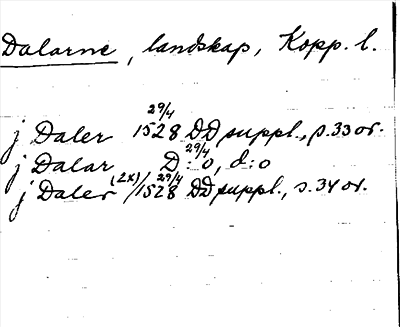 Dalarne, landskap, Kopp. l.
j Daler 29/4 1528 DD suppl., s. 33 or.
j Dalar D:o, d:o
j Daler (2x) 29/4 1528 DD suppl., s. 34 or.